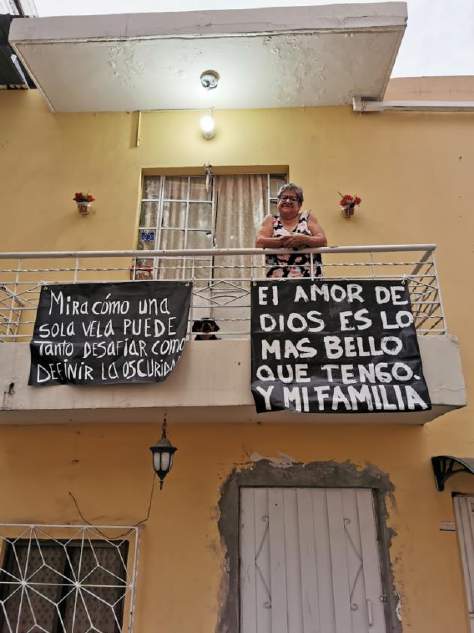 MIRA CÓMO UNA
SOLA VELA PUEDE
TANTO DESAFIAR COMO
DEFINIR LA OSCURIDA
El AMOR DE
DIOS ES LO
MAS BELLO
QUE TENGO.
Y MI FAMILIA